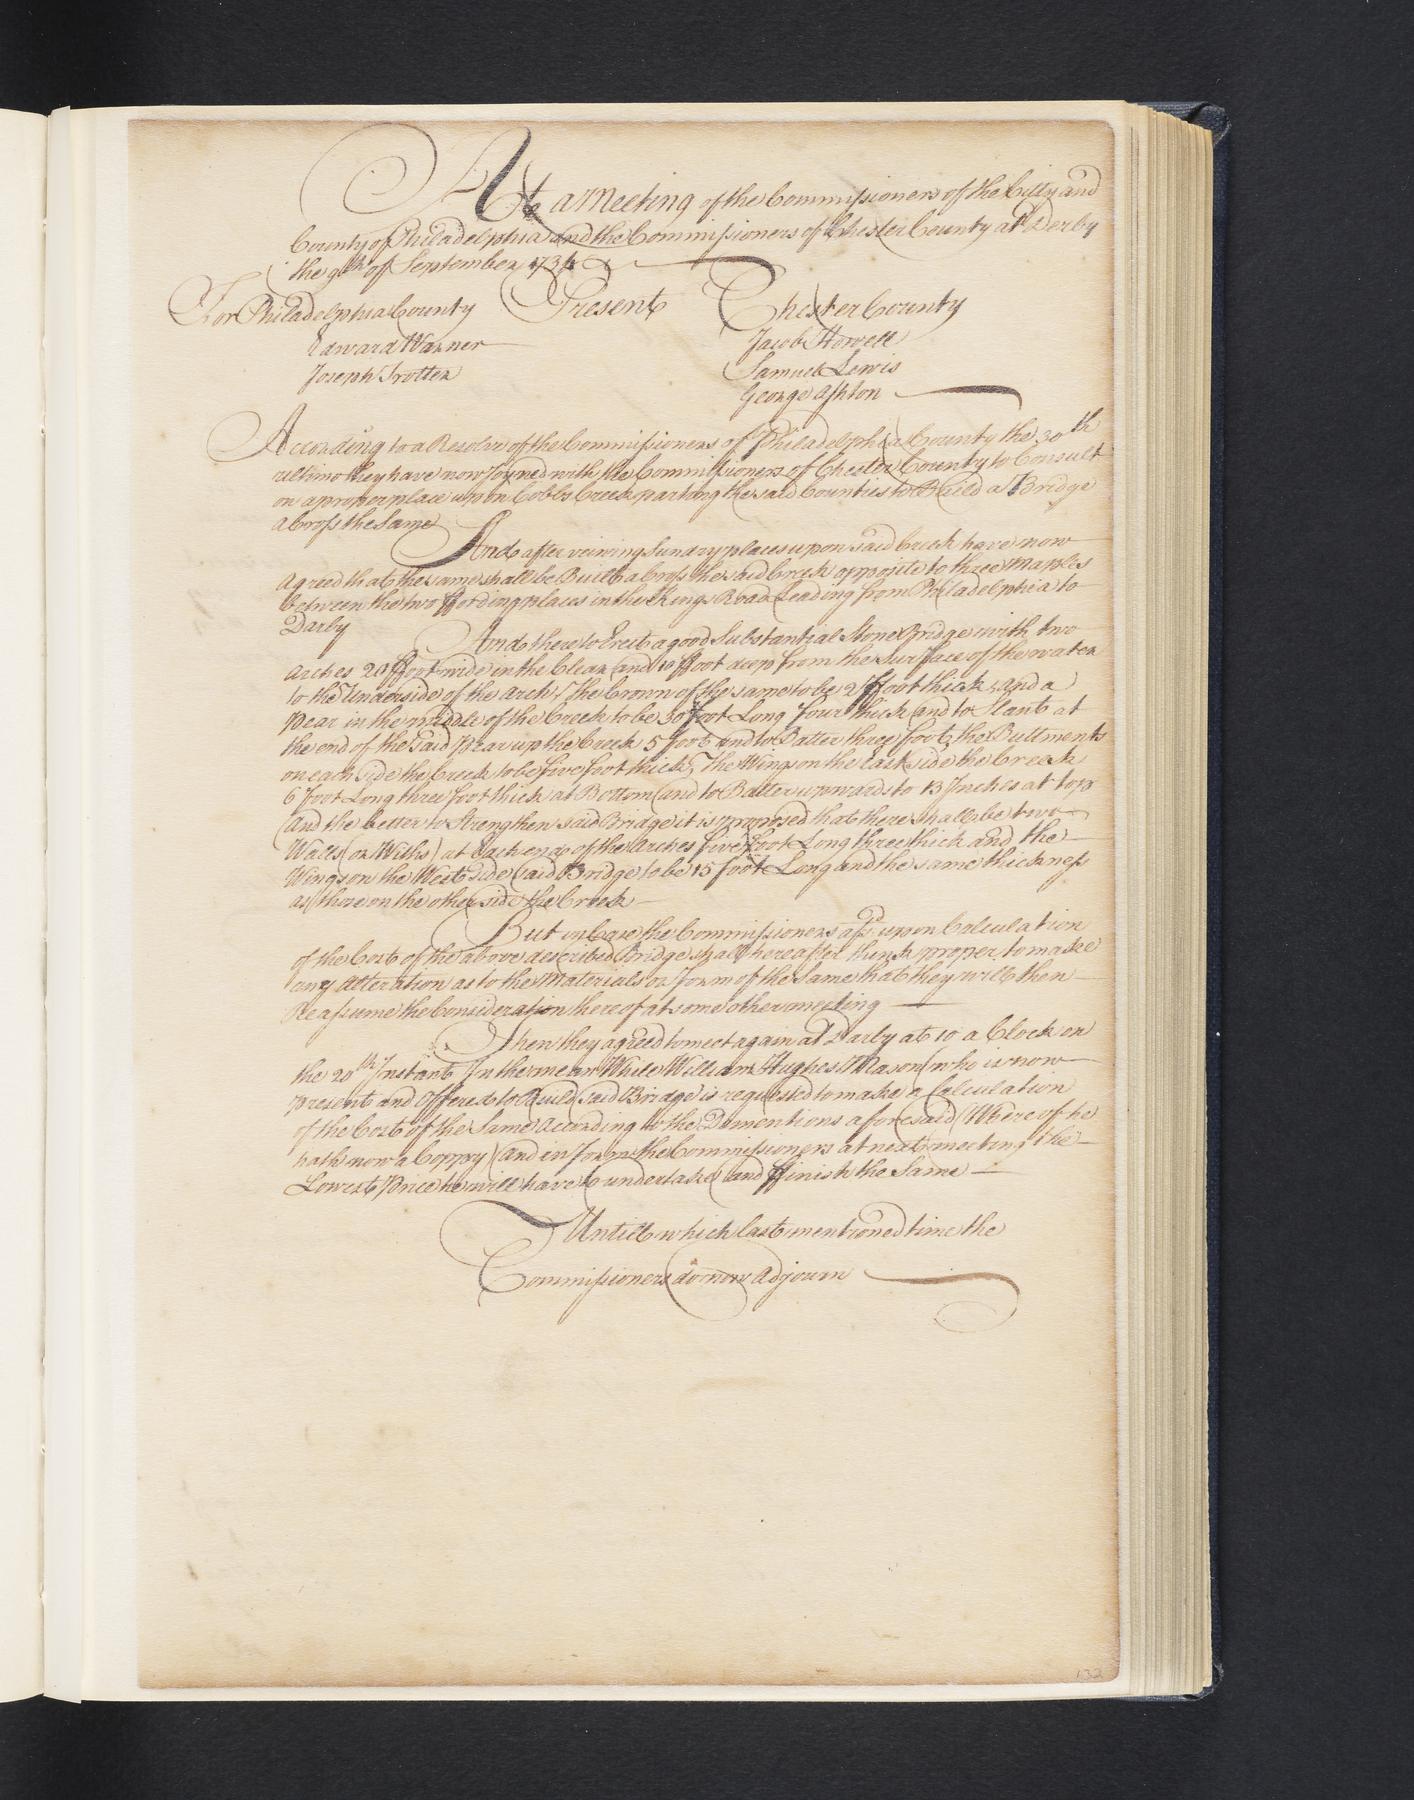 At a Meeting of the Commissioners of the Citty and
County of Philadelphia and the Commissioners of Chester County at Derby
the 9th of September 1734
For Philadelphia County Present Chester County
Edward Warner Jacob Howell
Joseph Trotter Samuel Lewis
George Ashton
According to a Resolve of the Commissioners of Philadelphia County the 30th
ultimo they have now Joyned with the Commissioners of Chester County to Consult
on a proper place upon Cobbs Creek parting the said Counties to Build a Bridge
a Cross the Same
And after veiwing Sundry places upon said Creek have now
Agreed that the same shall be Built a Cross the said Creek opposite to three Mapples
between the two ffording places in the Kings Road Leading from Philadelphia to
Darby
And there to Erect a good Substantial Stone Bridge with two
Arches 20 ffoot wide in the Clear and 10 ffoot deep from the Surface of the water
to the Underside of the Arch, The Crown of the same to be 2 ffoot thick, And a
Pear in the middle of the Creek to be 30 foot Long four thick and to Slant at
the end of the said Pear up the Creek 5 foot and to Batter three foot, the Buttments
on each side the Creek to be five foot thick, The Wings on the East side the Creek
6 foot Long three foot thick at Bottom and to Batter upwards to 13 Inches at top
And the better to Strengthen said Bridge it is proposed that there shall be two
Walls (or Withs) at Each end of the Arches five foot Long three thick and the
Wings on the West side said Bridge to be 15 foot Long and the same thickness
as those on the other side the Creek
But in Case the Commissioners afsd. upon Calculation
of the Cost of the above described Bridge shall hereafter think proper to make
any Alteration as to the Materials or form of the Same that they will then
Reassume the Consideration thereof at some other meeting
Then they agreed to meet again at Darby at 10 a Clock on
the 20th Instant In the mean While William Hughes Mason (who is now
present and Offered to Build said Bridge is requested to make a Calculation
of the Cost of the Same According to the Dementions aforesaid (Where of he
hath now a Coppy) and inform the Commissioners at next meeting the
Lowest Price he will have to undertake and ffinish the Same
Untill which last mentioned time the
Commissioners do now Adjourn
132